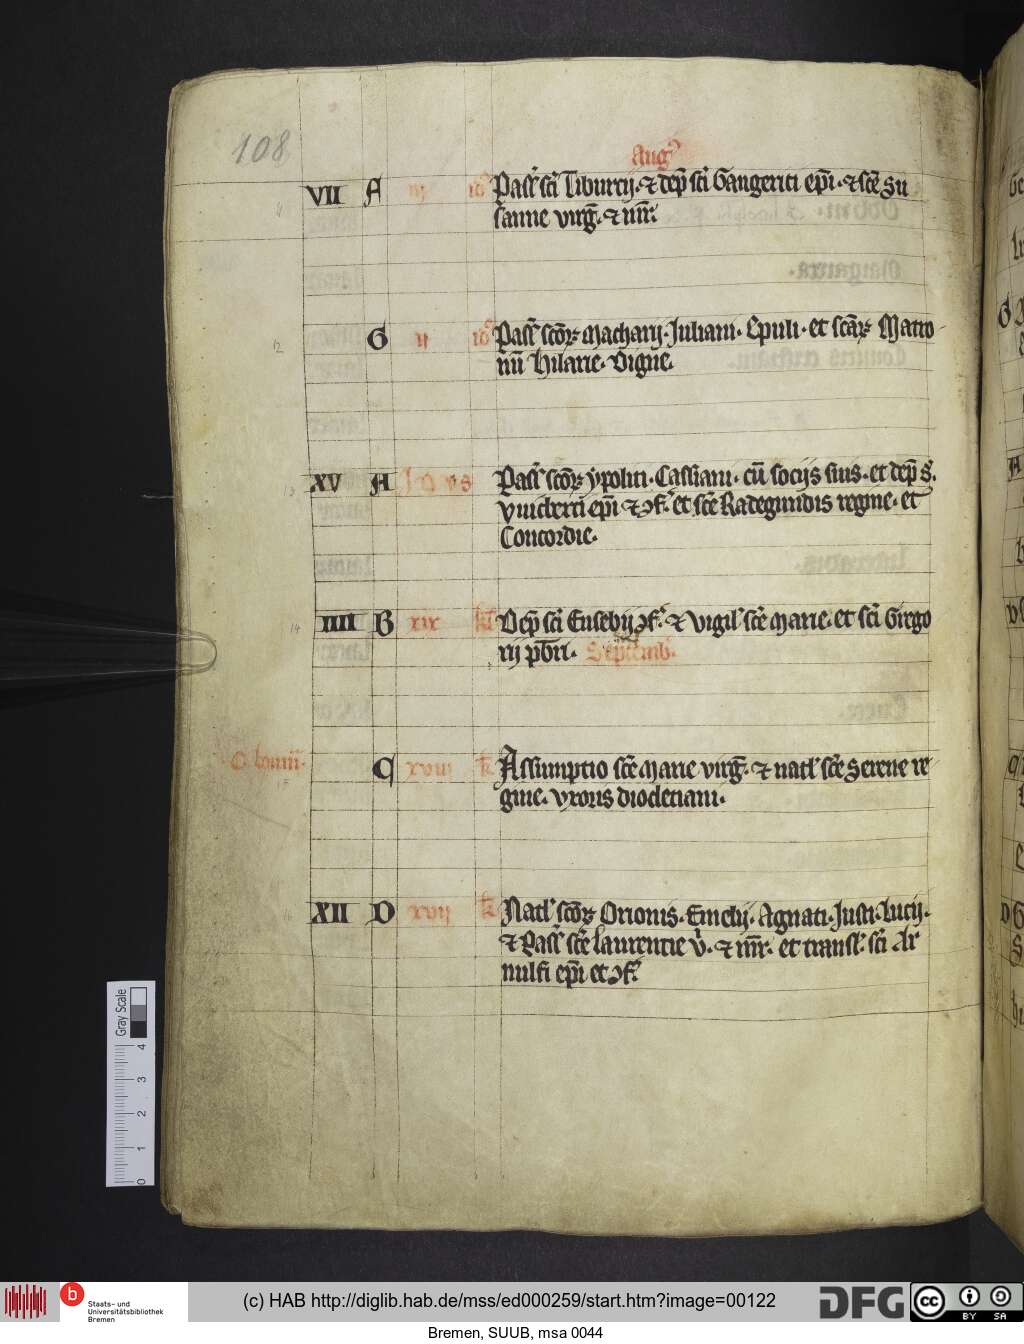 108
Augꝰ
VII F iij idꝰ Pass̄ sc̄i Tiburcij · ⁊ dep̄ sc̄i Gangerici ep̄i · ⁊ sc̄e Su
sanne virg̃ · ⁊ mr̄
12 G ij idꝰ Pass̄ sc̄oꝝ Macharij · Juliani · Epuli · et sc̄aꝝ Matro
nū Hilarie · Digne ·
13 XV A Idus Pass̄ sc̄oꝝ ypoliti · Cassiani · cū socijs suis · et dep̄ s̄ ·
Vuicberti ep̄i ⁊ ꝯf̄ · et sc̄e Radegundis regine · et
Concordie ·
14 IIII B xix kl̄ Dep̄ sc̄i Eusebij ꝯf̄ · ⁊ vigil̄ sc̄e Marie · et sc̄i Grego
rij pb̄ri · Septemb̄ ·
15 C xviii k̄ Assumptio sc̄e Marie virg̃ · ⁊ natl̄ sc̄e Serene re
gine · vxoris diocletiani ·
16 XII D xvij k̄ Natl̄ sc̄oꝝ Orionis · Emelij · Agnati · Justi · Lucij ·
⁊ Pass̄ sc̄e Laurentie v̄ · ⁊ mr̄ · et transl̄ · sc̄i Ar
nulfi ep̄i et ꝯf̄
Gray Scale
0 1 2 3 4
b Staats- und
Universitätsbibliothek
Bremen
(c) HAB http://diglib.hab.de/mss/ed000259/start.htm?image=00122
DFG
cc BY SA
Bremen, SUUB, msa 0044